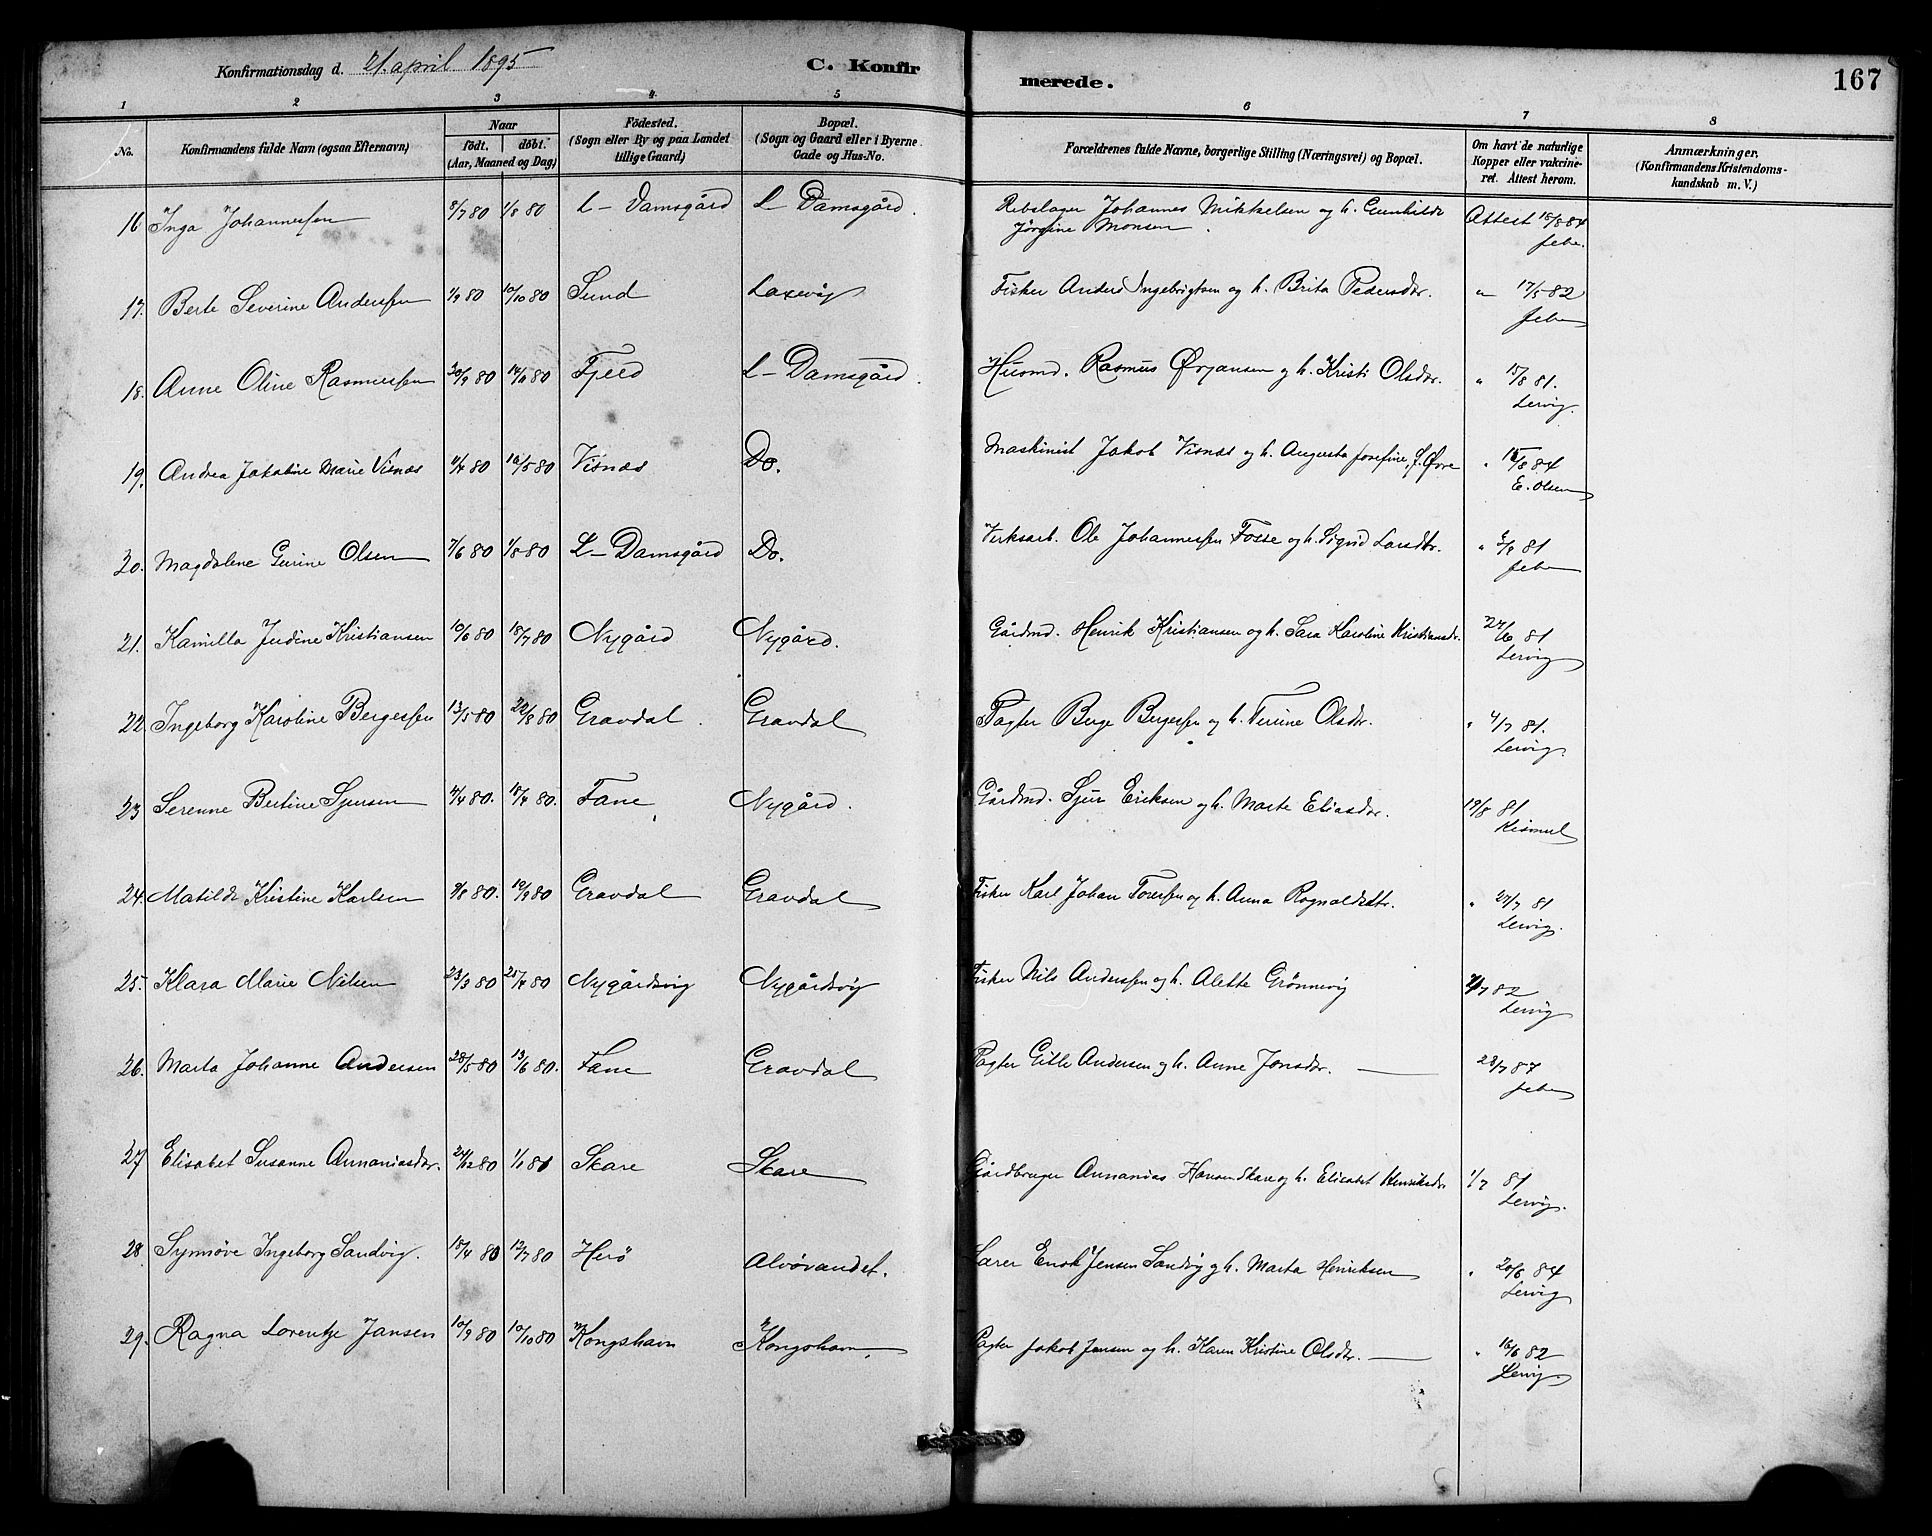 Konfirmationsdag d. 21. april 1895
C. Konfirmerede.
167
1 2 3 4 5 6 7 8
No.
Konfirmandens fulde Navn (ogsaa Efternavn)
Naar
födt. döbt.
(Aar, Maaned og Dag)
Födested.
(Sogn eller By og paa Landet
tillige Gaard)
Bopæl.
(Sogn og Gaard eller i Byerne
Gade og Hus-No.
Forældrenes fulde Navne, borgerlige Stilling (Næringsvei) og Bopæl.
Om havt de naturlige
Kopper eller vakcine-
ret. Attest herom.
Anmærkninger.
(Konfirmandens Kristendoms-
kundskab m. V.)
16 Inga Johannessen 8/7 80 1/8 80 L- Damsgård L- Damsgård. Rebslager Johannes Mikkelsen og h. Gunhilde Attest 18/8 84
Jörgine Monsen.
17. Berte Severine Anderssen 1/9 80 10/10 80 Sund Laxevåg Fisker Anders Ingebrigtsen og h. Brita Pedersdtr. " 17/5 82
18. Anne Oline Rasmussen 20/9 80 80 Fjeld L- Damsgård. Husmd. Rasmus Ørjansen og h. Kristi Olsdtr. " 15/8 81.
Lervig.
19. Andrea Jakobine Marie Visnæs 80 16/5 80 Visnæs Do. Maskinist Jakob Visnæs og h. Augusta Josefine, f. Øvre " 84
E. Olsen
20. Magdalene Gurine Olsen 7/6 80 1/8 80 L- Damsgård Do. Verksarb. Ole Johannessen Fosse og h. Sigrid Larsdtr. " 81
21. Kamilla Judine Kristiansen 10/6 80 18/7 80 Nygård Nygård. Gårdmd. Henrik Kristiansen og h. Sara Karoline Kristiansdr. 24/6 81
Lervig
22. Ingeborg Karoline Bergessen 13/5 80 22/8 80 Gravdal. Gravdal Pagter Berge Bergessen og h. Terine Olsdr. " 4/7 81.
Lervig.
23 Serenne Bertine Sjursen 80. 18/4 80. Fane Nygård. Gårdmd. Sjur Eriksen og h. Marte Eliasdr. 19/8 81
Kismul
24. Matilde Kristine Karlsen 9/8 80. 19/9 80 Gravdal Gravdal Fisker Karl Johan Toressen og h. Anna Rognaldsdtr. " 27/7 81
Lervig.
25. Klara Marie Nilsen 23/3 80 25/4 80 Nygårdsvig Nygårdsvig Fisker Nils Anderssen og h. Alette Grönnevig 82
Lervig
26. Marta Johanne Andersen 28/5 80 13/6 80. Fane Gravdal Pagter Gitle Andersen og h. Anne Jonsdtr. 23/7 87
27 Elisabet Susanne Annaniasdtr. 24/12 80 1/1 81 Skare Skare Gårdbruger Annanias Hansen Skare og h. Elisabet Henriksdr 1/7 81
Lervig.
28. Synnöve Ingeborg Sandvig. 18/4 80 12/7 80 Herö Alvövandet. Lærer Enok Jensen Sandvig og h. Marta Henriksen " 20/6 84
Lervig
29. Ragna Lorentze Jansen 10/9 80 10/10 80 Kongshavn Kongshavn. Pagter Jakob Jansen og h. Karen Kristine Olsdtr. " 16/6 82
Lervig.